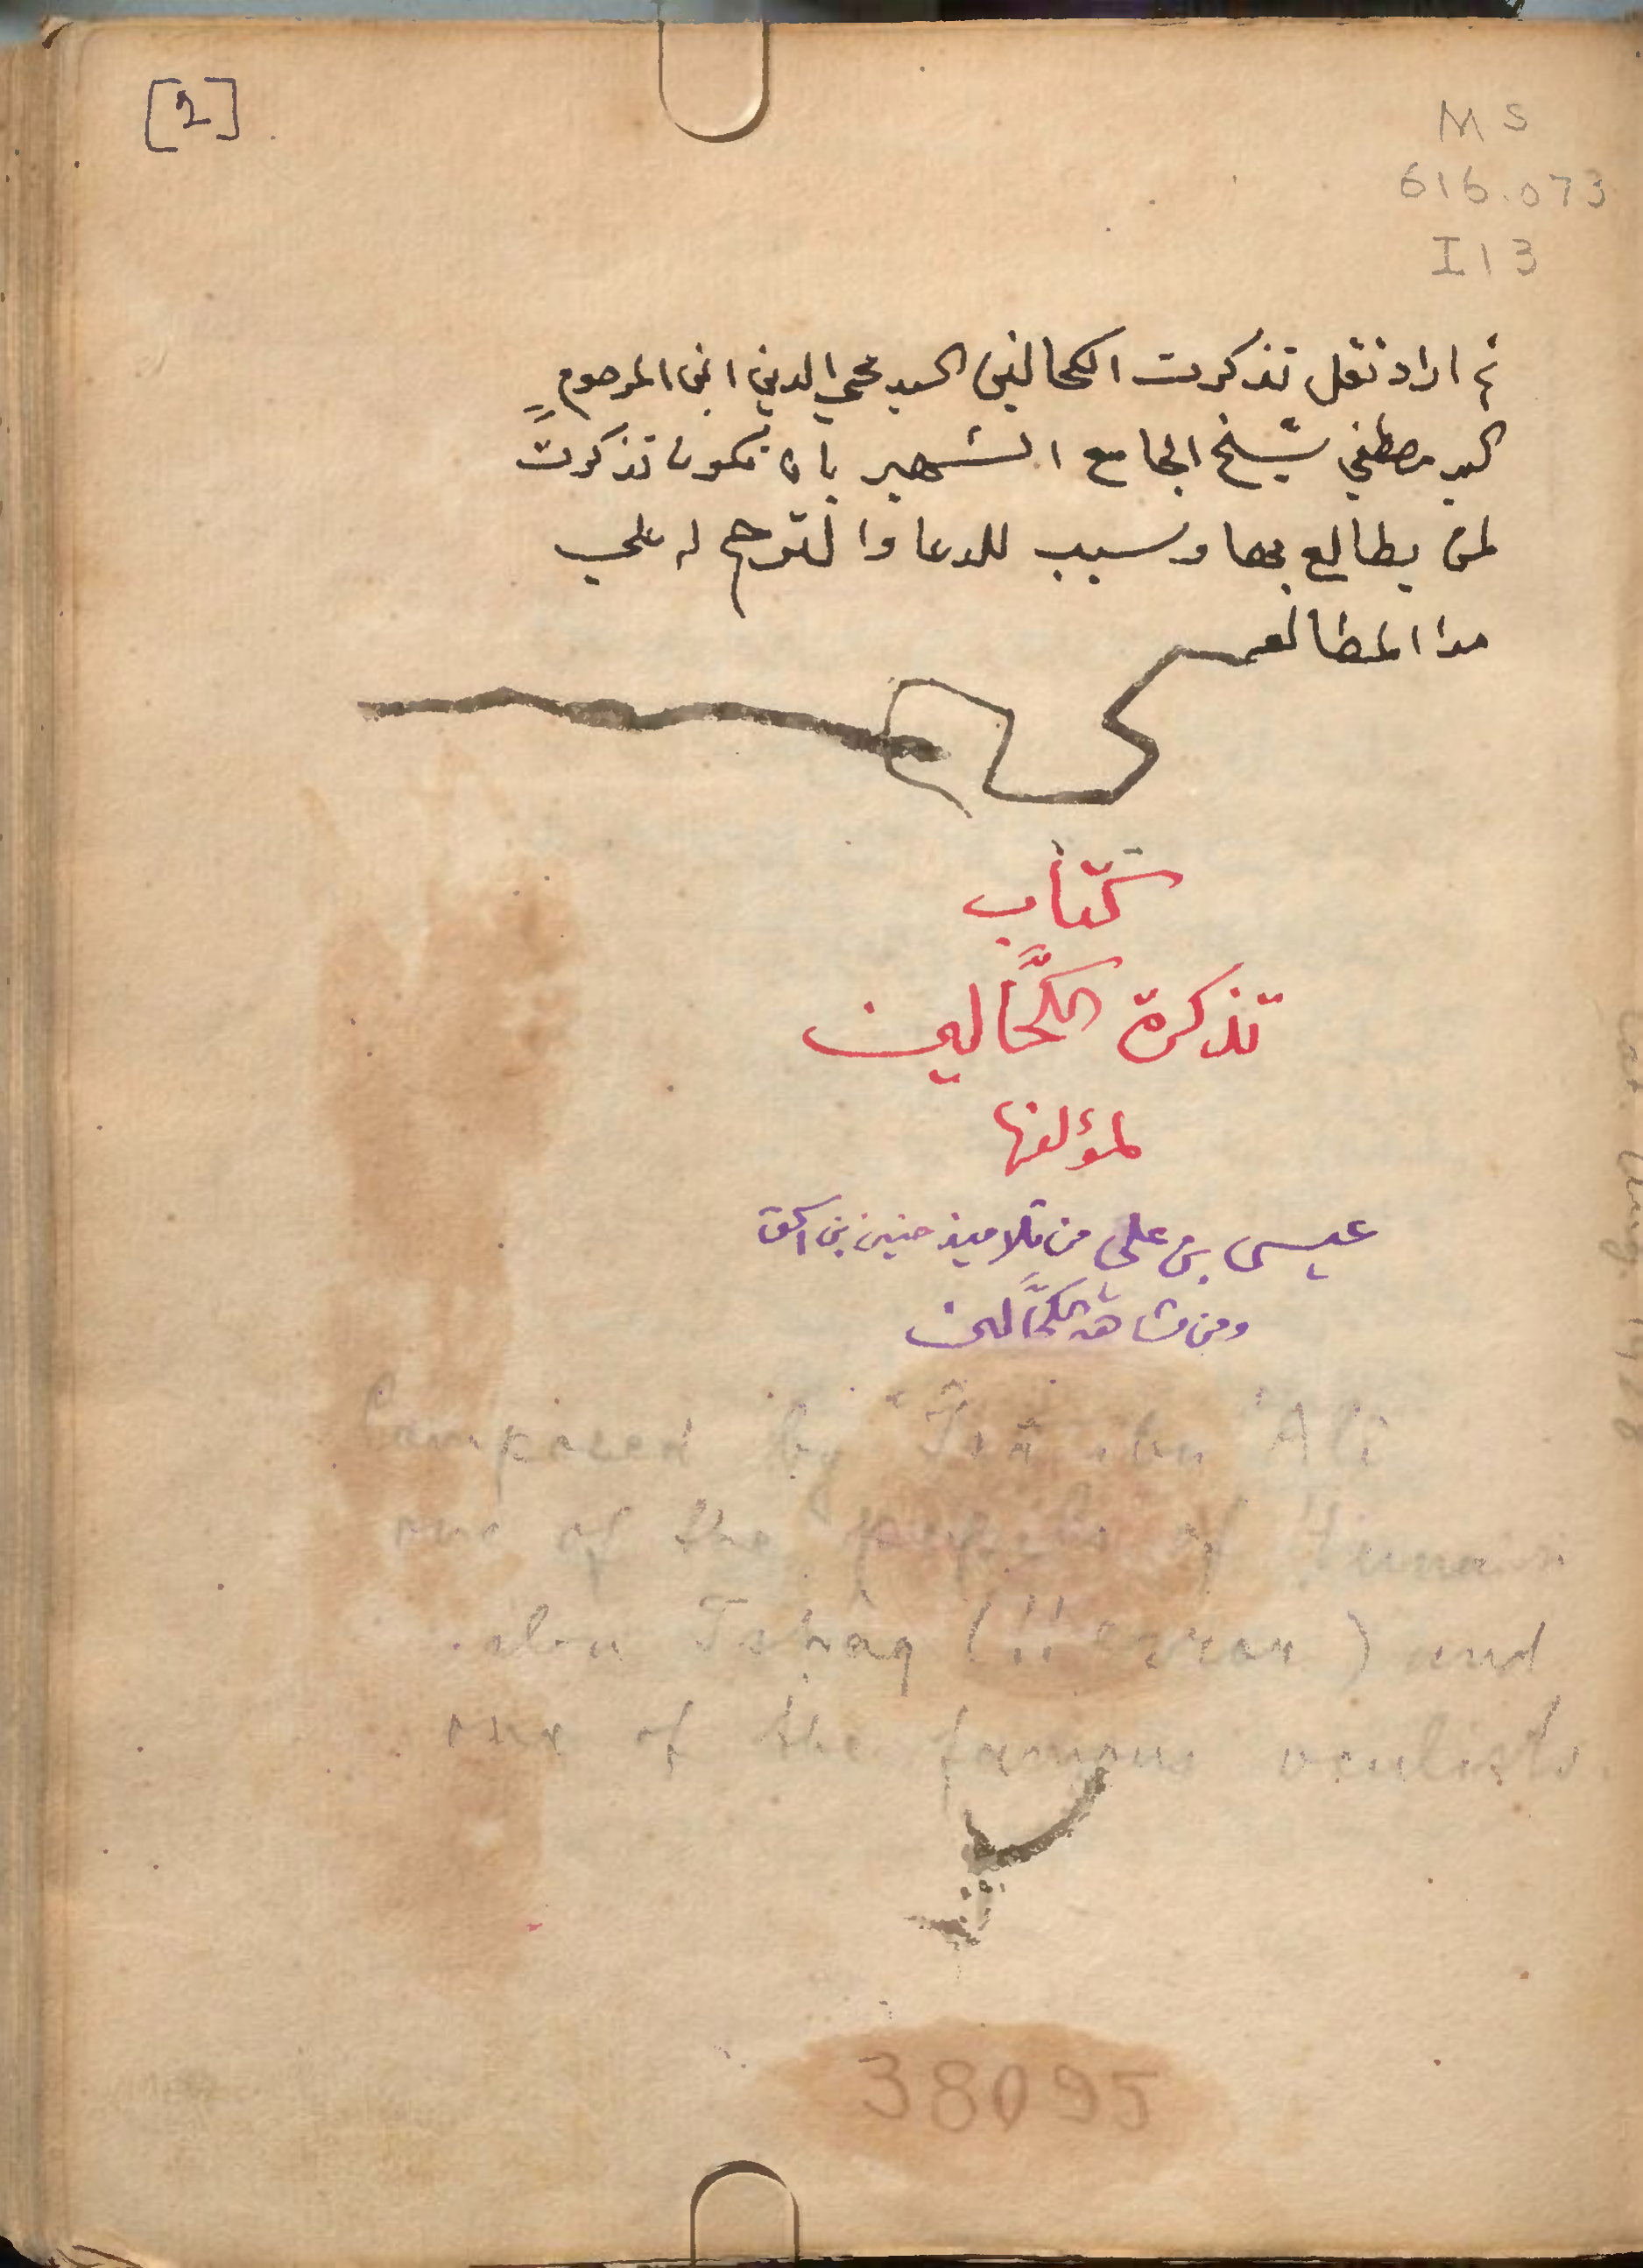 [2]
MS
616.073
I13
ثم اراد نقل تذكرت الكحالين السيد محي الدين ابن المرحوم
السيد مصطفي شيخ الجامع الشهير بان تكون تذكرت
لمن يطالع بها وسبب للدعا والترحم له علي
هذا المطالعه
كتاب
تذكرة الكحَّالين
لمؤلفها
عيسى بن على من تلاميذ حنين بن اسحق
ومن مشاهير الكحَّالين
Composed by 'Īsā ibn 'Alī
one of the pupils of Hunain
ibn Ishāq and
one of the famous oculists.
38095